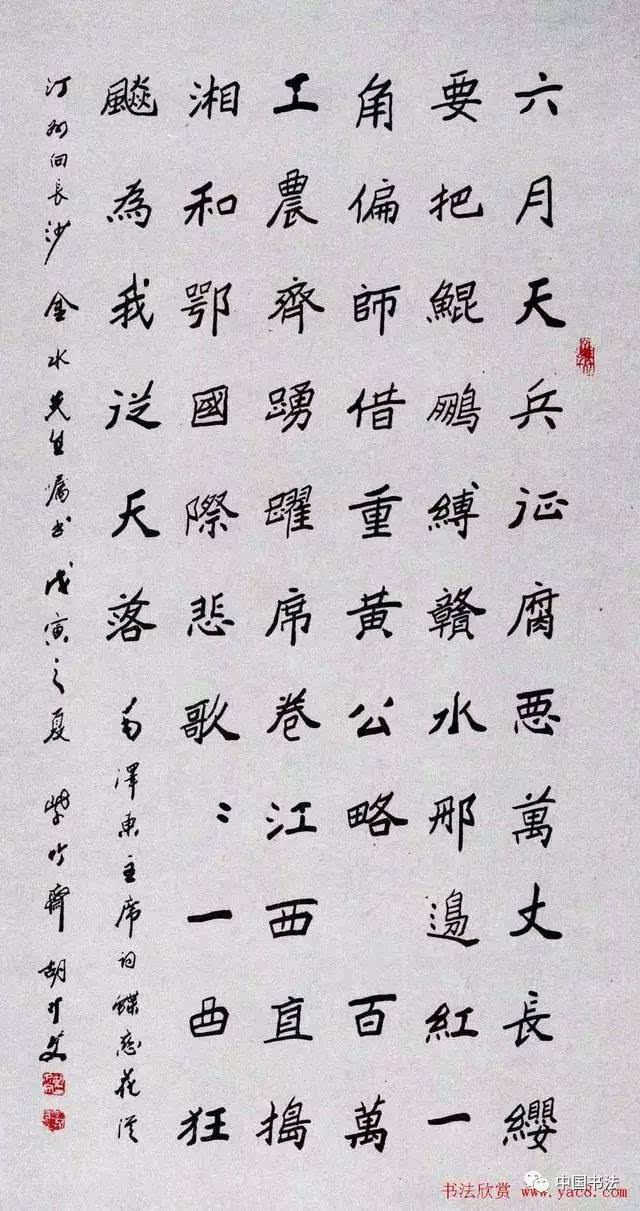 六月天兵征腐惡萬丈長纓
要把鯤鵬縛贛水那邊紅一
角偏師借重黃公略 百萬
工農齊踴躍席卷江西直搗
湘和鄂國際悲歌〻一曲狂
飇為我從天落 毛澤東主席詞蝶戀花從
汀州向長沙 金水先生嘱书 戊寅之夏 紫竹齋 胡文
中国书法
书法欣赏 www.yac8.com